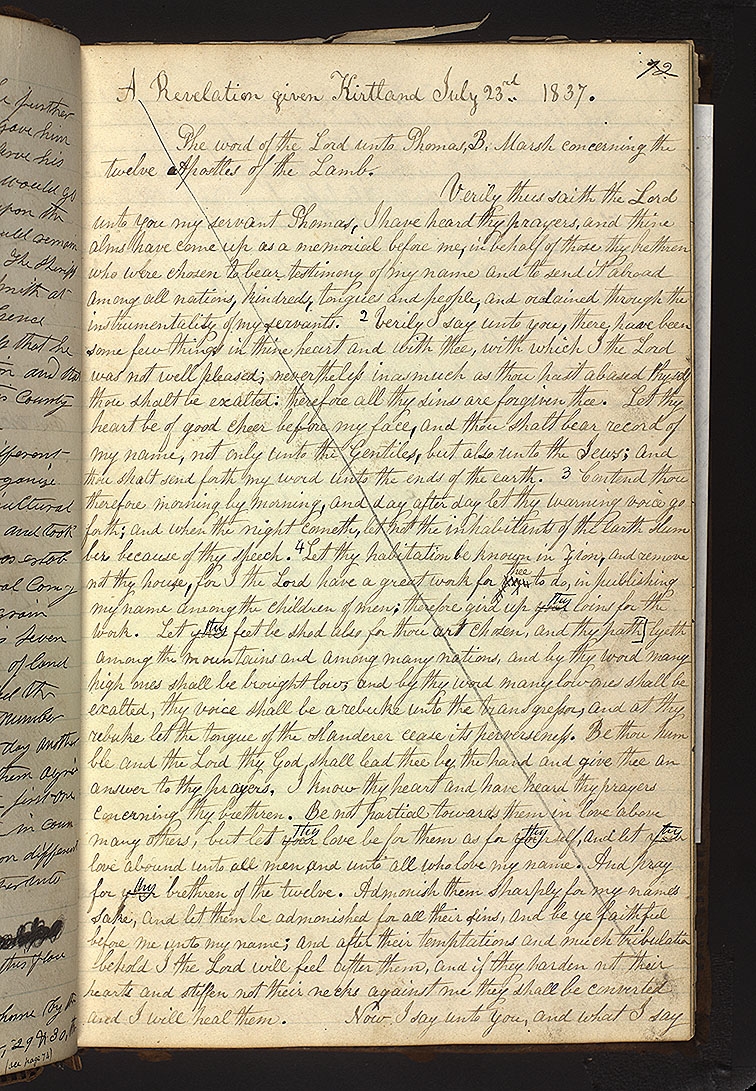 72
A Revelation given Kirtland July 23rd 1837.
The word of the Lord unto Thomas, B, Marsh concerning the
twelve Apostles of the Lamb.
Verily thus saith the Lord
unto you my servant Thomas, I have heard thy prayers, and thine
alms have come up as a memorial before me, in behalf of those thy brethren
who were chosen to bear testimony of my name and to send it abroad
among all nations, kindreds, tongues and people, and ordained through the
instrumentality of my servants. 2 Verily I say unto you, there have been
some few things in thine heart and with thee, with which I the Lord
was not well pleased; nevertheless inasmuch as thou hast abased thyself
thou shalt be exalted: therefore all thy sins are forgiven thee. Let thy
heart be of good cheer before my face, and thou shalt bear record of
my name, not only unto the Gentiles, but also unto the Jews; and
thou shalt send forth my word unto the ends of the earth. 3 Contend thou
therefore morning by morning, and day after day let thy warning voice go
forth; and when the night cometh, let not the inhabitants of the Earth slum
ber because of thy speech. 4 Let thy habitation be known in Zion, and remove
not thy house, for I the Lord have a great work for thee to do, in publishing
my name among the children of men; therefore gird up thy loins for the
work. Let thy feet be shod also for thou art chosen, and thy path] lyeth
among the mountains and among many nations, and by thy word many
high ones shall be brought low; and by thy word many low ones shall be
exalted, thy voice shall be a rebuke unto the transgressor, and at thy
rebuke let the tongue of the slanderer cease its perverseness. Be thou hum
ble and the Lord thy God, shall lead thee by the hand and give thee an
answer to thy prayers. I know thy heart and have heard thy prayers
concerning thy brethren. Be not partial towards them in love above
many others, but let thy love be for them as for thyself, and let thy
love abound unto all men and unto all who love my name. And pray
for thy brethren of the twelve. Admonish them sharply for my names
sake, and let them be admonished for all their sins, and be ye faithful
before me unto my name; and after their temptations and much tribulation
behold I the Lord will feel after them, and if they harden not their
hearts and stiffen not their necks against me they shall be converted
and I will heal them. Now, I say unto you, and what I say
further
gave him
would go
upon the
smith at
that he
County
different
and took
Seven
of land
number
day another
them again
in coun
on different
this plan
29 & 30,
(see page 71)